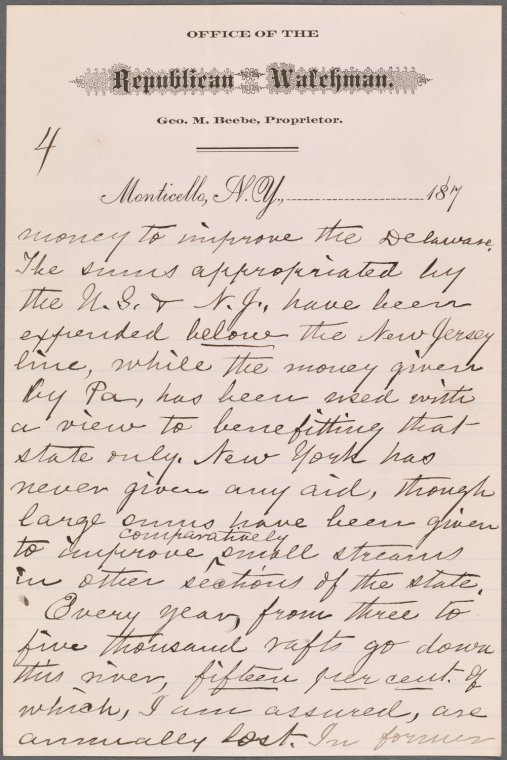 OFFICE OF THE
Republican Watchman.
Geo. M. Beebe, Proprietor.
4
Monticello, N.Y., 187
money to improve the Delaware.
The sums appropriated by
the U.S. & N.J., have been
expended below the New Jersey
line, while the money given
by Pa, has been used with
a view to benefitting that
state only. New York has
never given any aid, though
large sums have been given
comparatively
to improve ^ small streams
in other sections of the state.
Every year, from three to
five thousand rafts go down
this river, fifteen per cent. of
which, I am assured, are
annually lost. In former